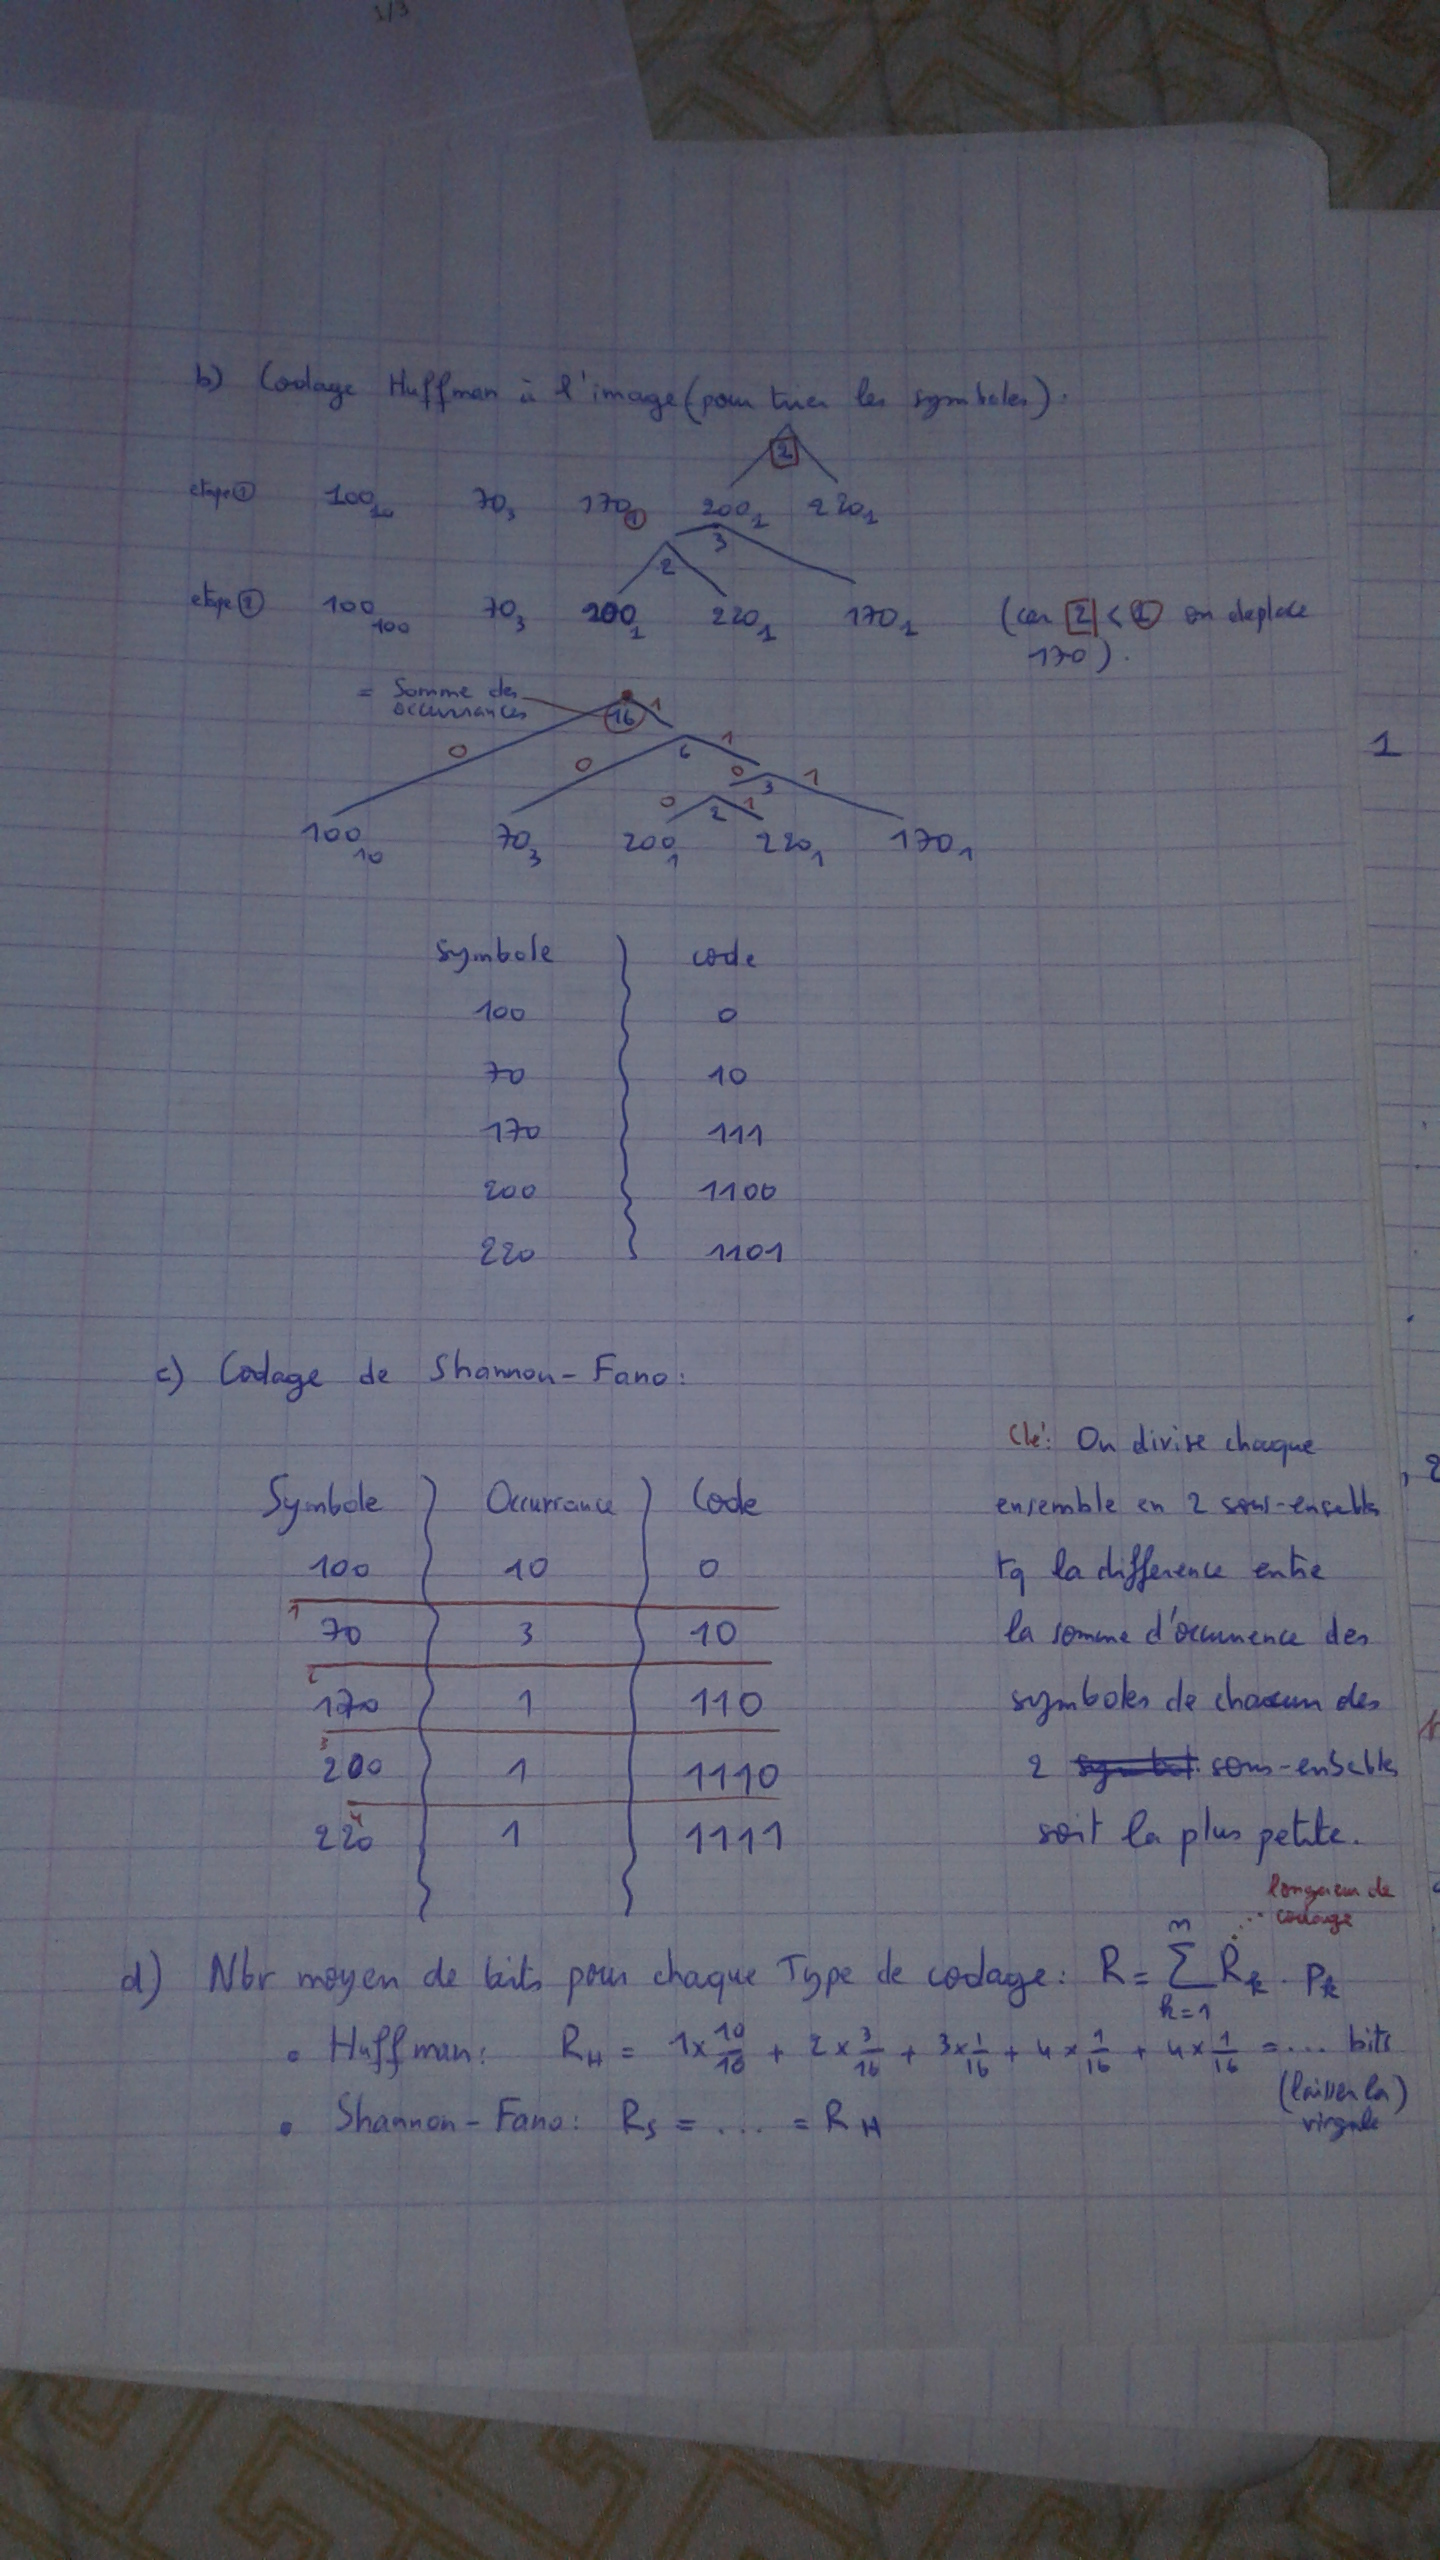 1/3
b) Codage Huffman à l'image (pour trier les symboles).
2
etape ① 100₁₀ 70₃ 170① 200₁ 220₁
3
2
etape ② 100₁₀₀ 70₃ 200₁ 220₁ 170₁ (car 2 < ① on deplace
170).
= Somme des
occurrances
16 1
0 0 6 1
0 3 1
0 2 1
100₁₀ 70₃ 200₁ 220₁ 170₁
1
Symbole code
100 0
70 10
170 111
200 1100
220 1101
c) Codage de Shannon-Fano:
Symbole Occurrance Code
100 10 0
1
70 3 10
170 1 110
3
200 1 1110
4
220 1 1111
Clé: On divise chaque
ensemble en 2 sous-ensebles
tq la difference entre
la somme d'occurrence des
symboles de chacun des
2 sous-ensebles
soit la plus petite.
longueur de
codage
d) Nbr moyen de bits pour chaque Type de codage: R = Σ_{k=1}^{n} R_k . P_k
• Huffman: R_H = 1×10/16 + 2×3/16 + 3×1/16 + 4×1/16 + 4×1/16 = ... bits
(laisser la)
virgule
• Shannon-Fano: R_S = .... = R_H